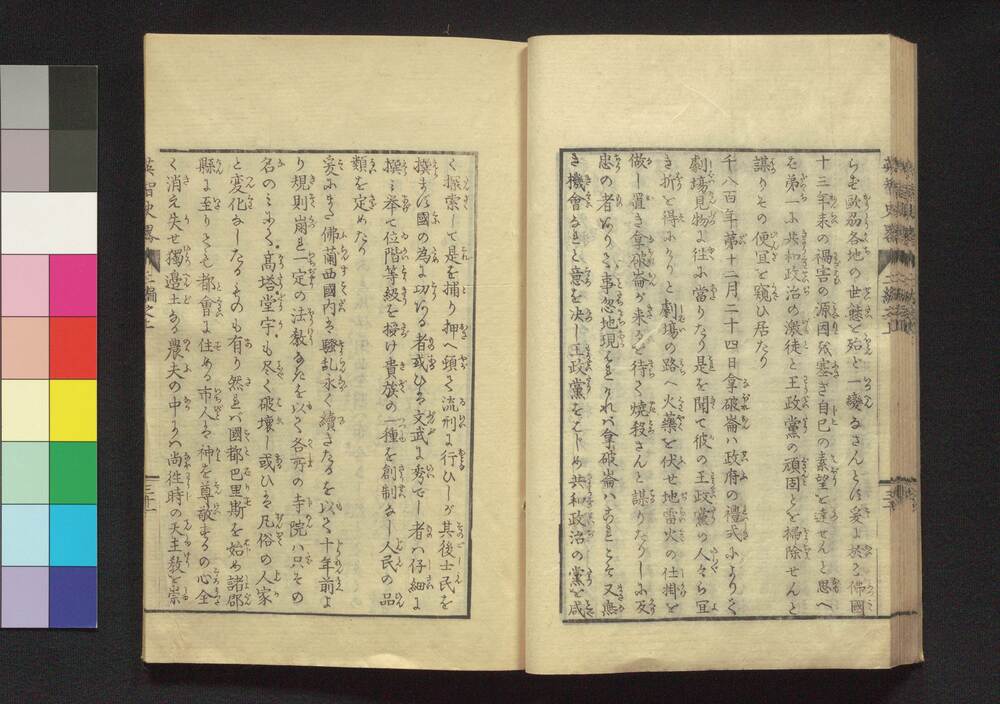 らも歐品各地の世態を殆と一變なさんとはせり爰に於て佛國
十三年来の禍害の源因を塞ぎ自己の素望を達せんと思へ
を第一に共和政治の激徒と王政黨の頑固とを掃除せんと
謀りその便宜を窺ひ居たり
千八百年第十二月二十四日拿破崙ハ政府の禮式によりて
劇場見物に往に當りたり是を聞て彼の王政黨の人々ら宜
き折を得たりと劇場の路へ火藥を伏せ地雷火の仕掛を
做し置き拿破崙が来るを待て燒殺さんと謀りたりしに反
忠の者ありて事忽地現はれけれバ拿破崙ハ
き機會なれと意を決し王政黨をはじめ共和政治の黨を咸
く探索して是を捕り押へ頓て流刑に行ひしが其後士民を
撰まば國の為に功ある者或ひは文武に秀でし者ハ仔細に
撰ミ挙て位階等級を授け貴族の一種を創制なし人民の品
類を定めたり
爰にまた佛蘭西國内は騷乱永く續きたるを以て十年前よ
り規則崩れ一定の法教なきを以て各所の寺院ハ只その
名のミにて髙塔堂宇も尽く破壊し或ひは凡俗の人家
と変化なしたるものも有り然れバ國都巴里斯を始め諸郡
縣に至りても都會に住める市人は神を尊敬するの心全
く消え失せ獨邊土なる農夫の中にハ尚徃時の天主敎を崇
英智史畧 二編之二 三十一